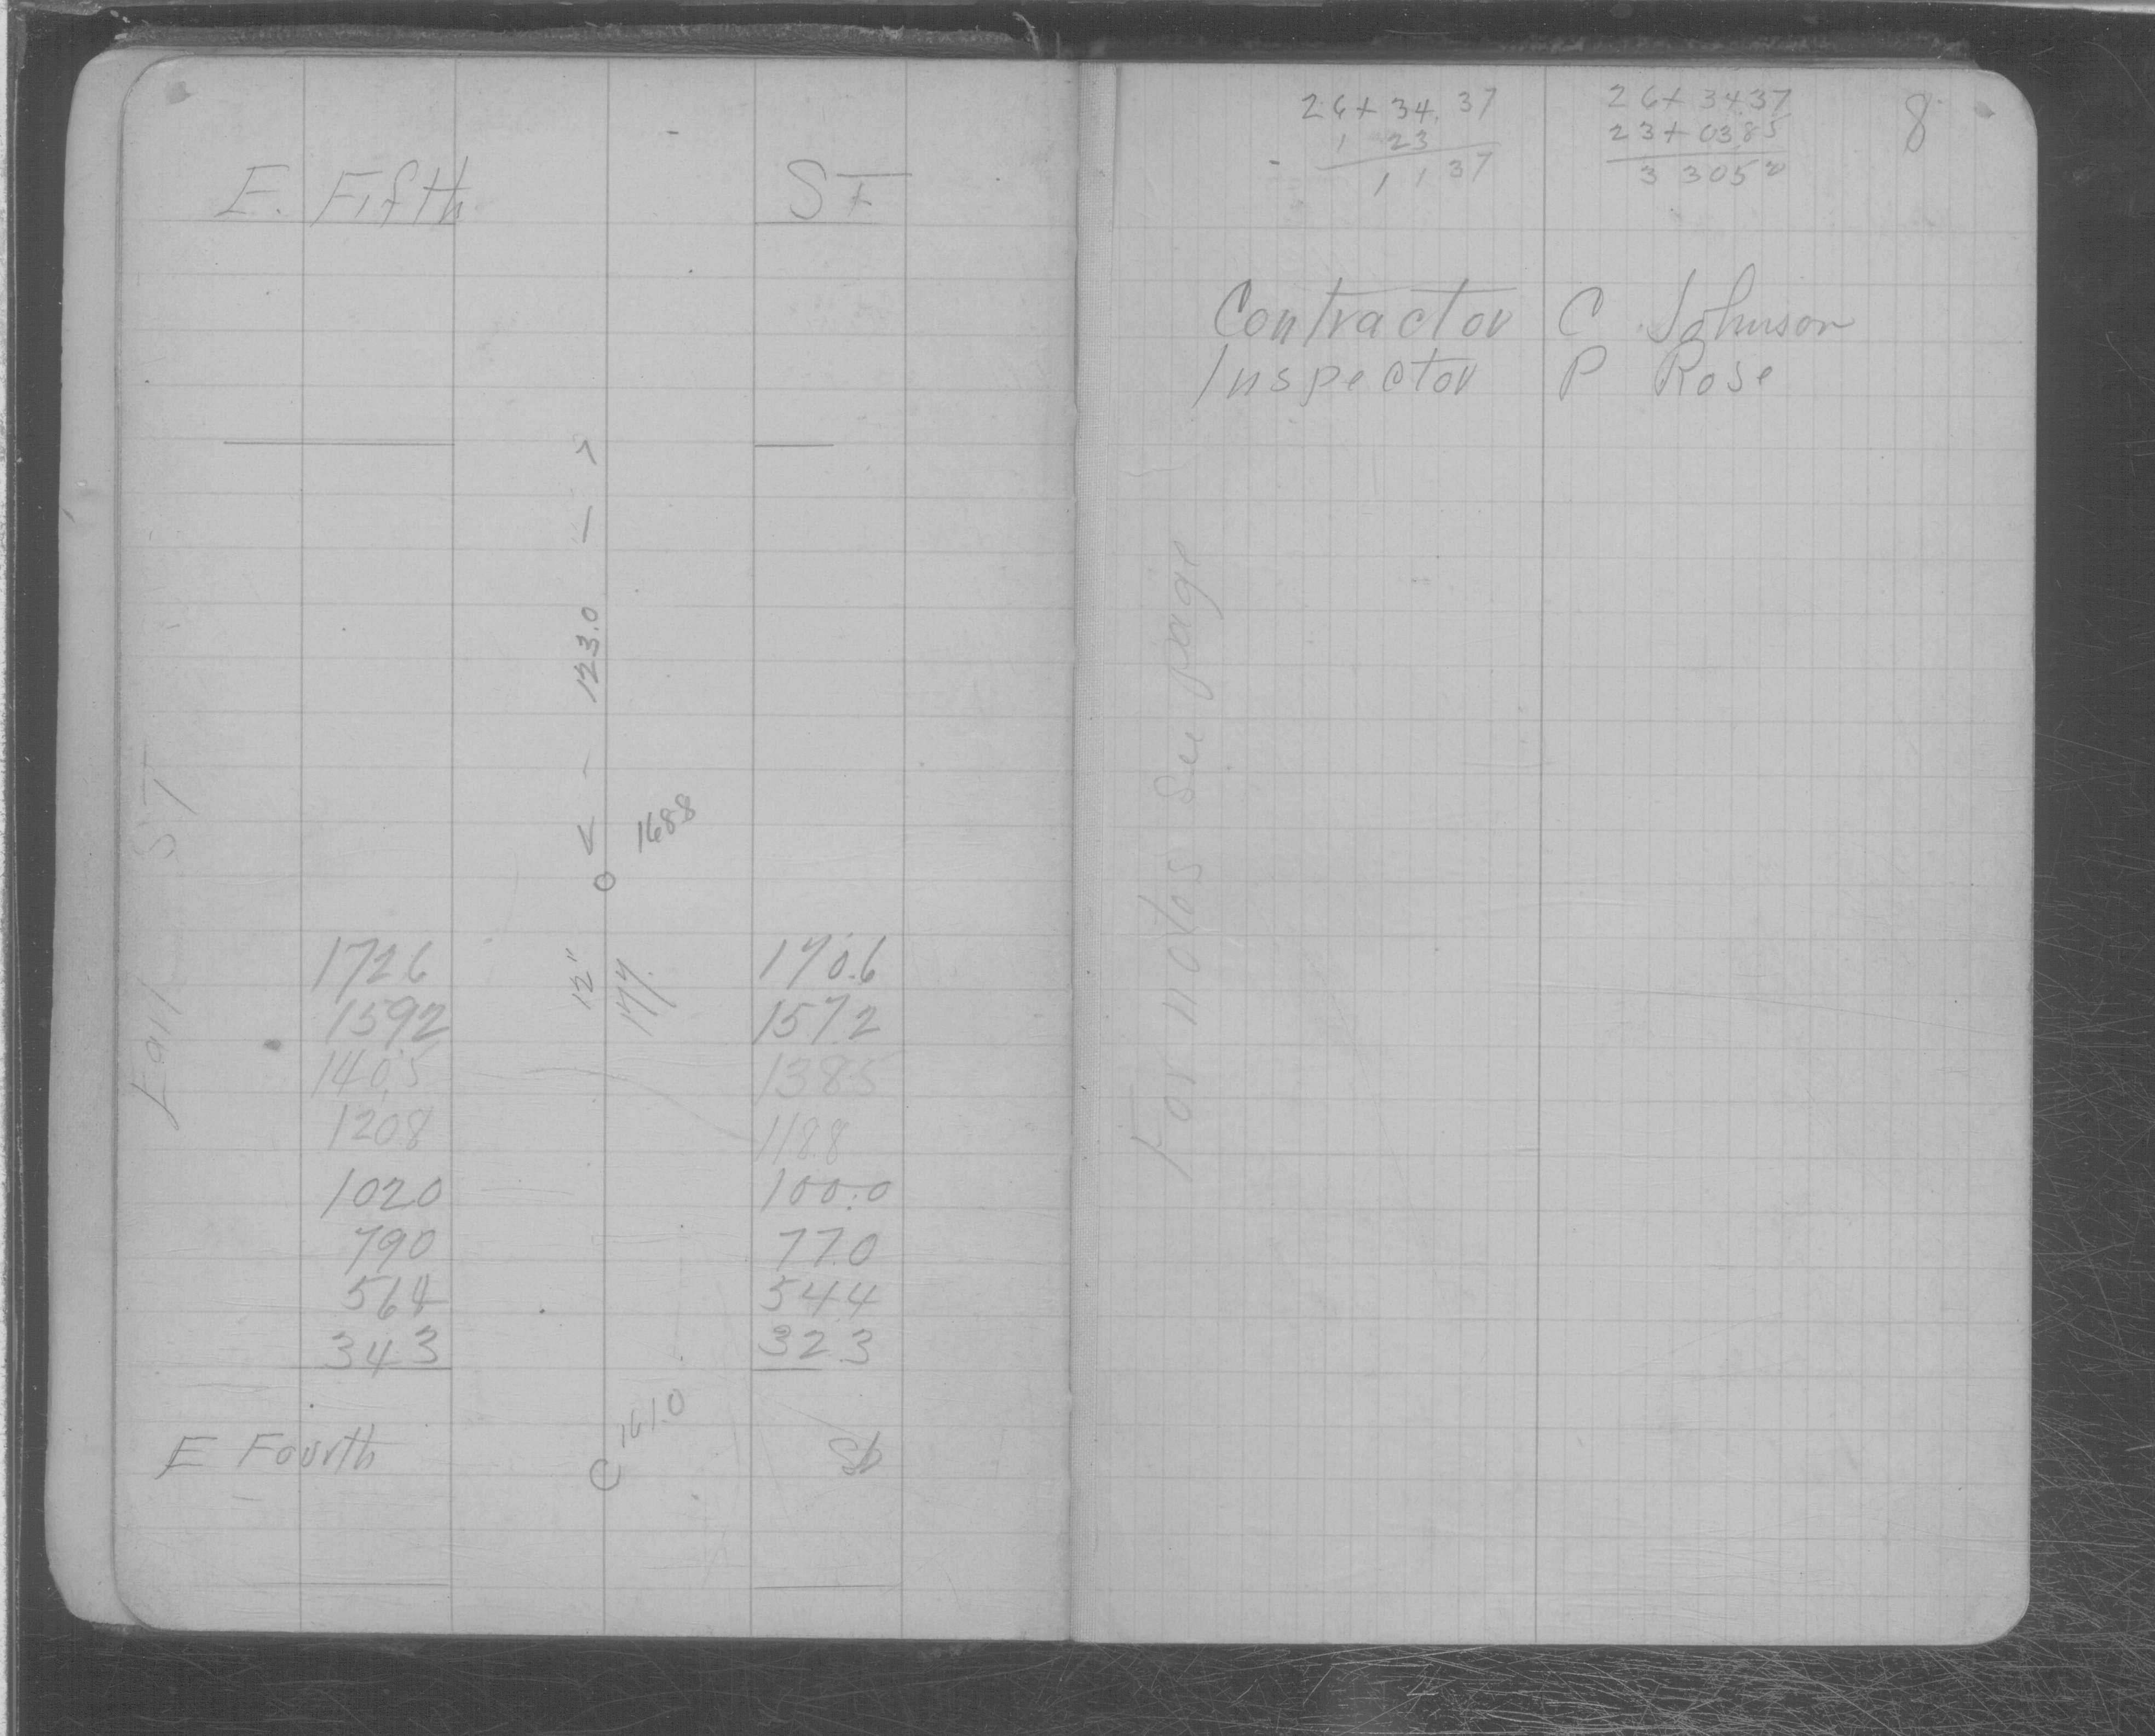 E. Fifth St
123.0
1688
12"
1726 170.6
1592 157.2
140.5 138.5
1208 118.8
1020 100.0
790 77.0
564 544
343 32.3
161.0
E Fourth St
Earl ST
26+34.37 26+3437
1 23 23+03.85
1 1 37 3 3052
8
Contractor C Johnson
Inspector P Rose
For notes see page